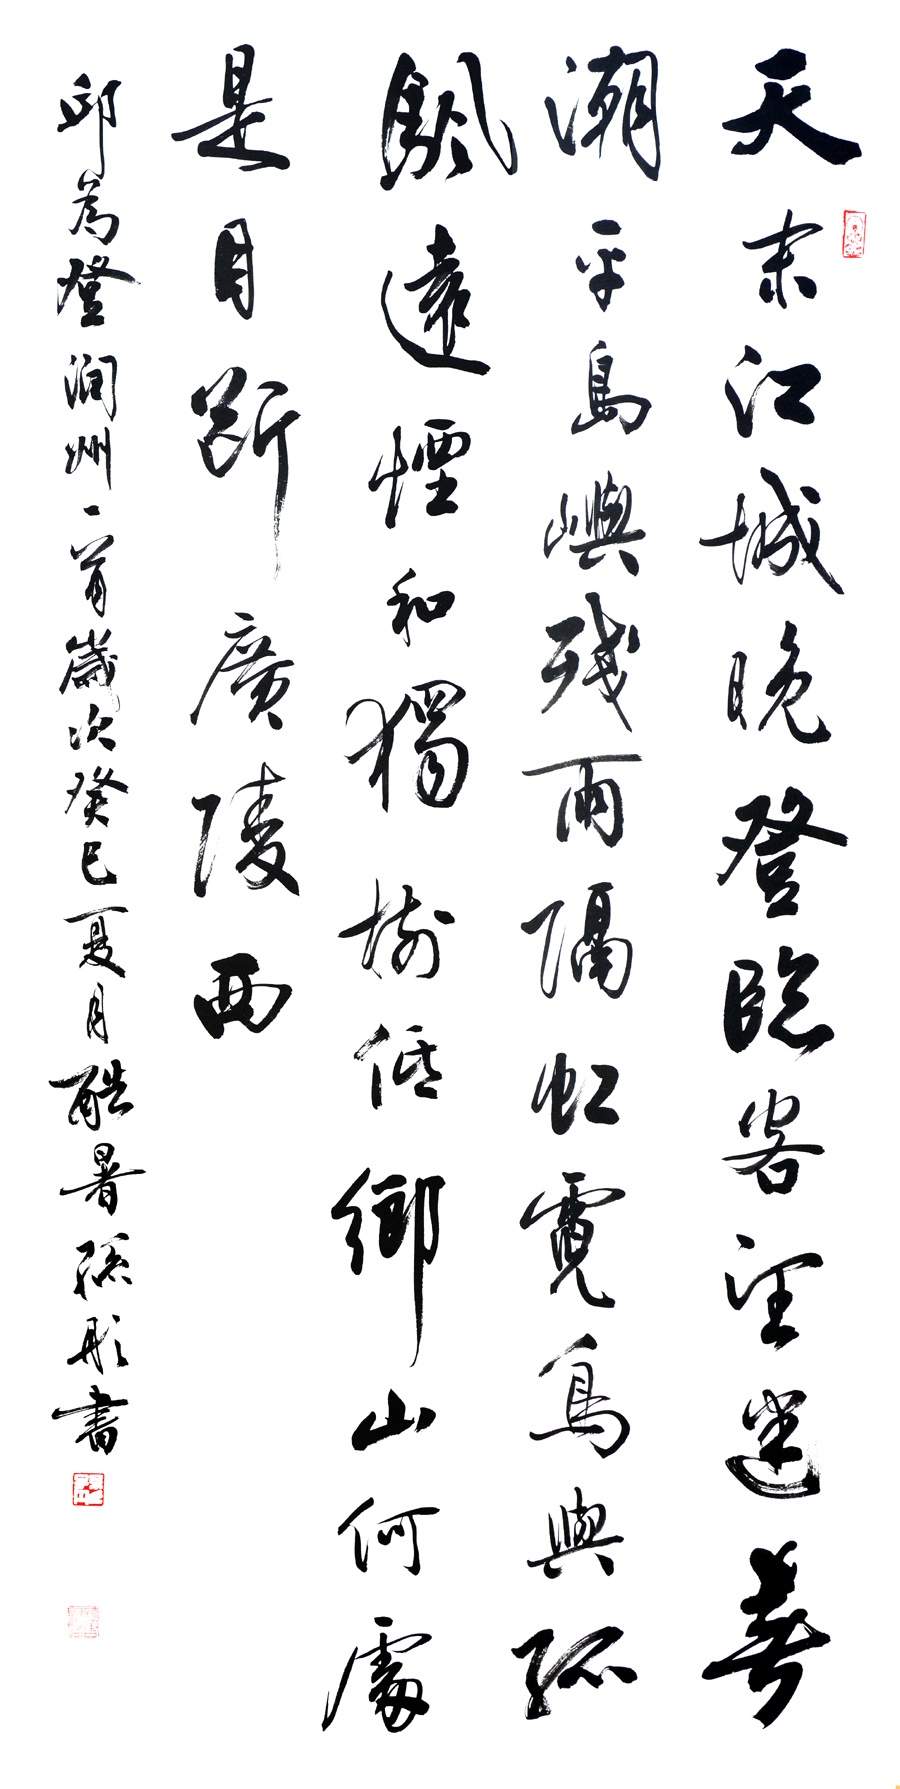 天末江城晚登臨客望迷春
潮平島嶼殘雨隔虹霓鳥與孤
颿遠煙和獨樹低鄉山何處
是目斷廣陵西
邱為登润州一首歲次癸巳夏月酷暑孫彤書